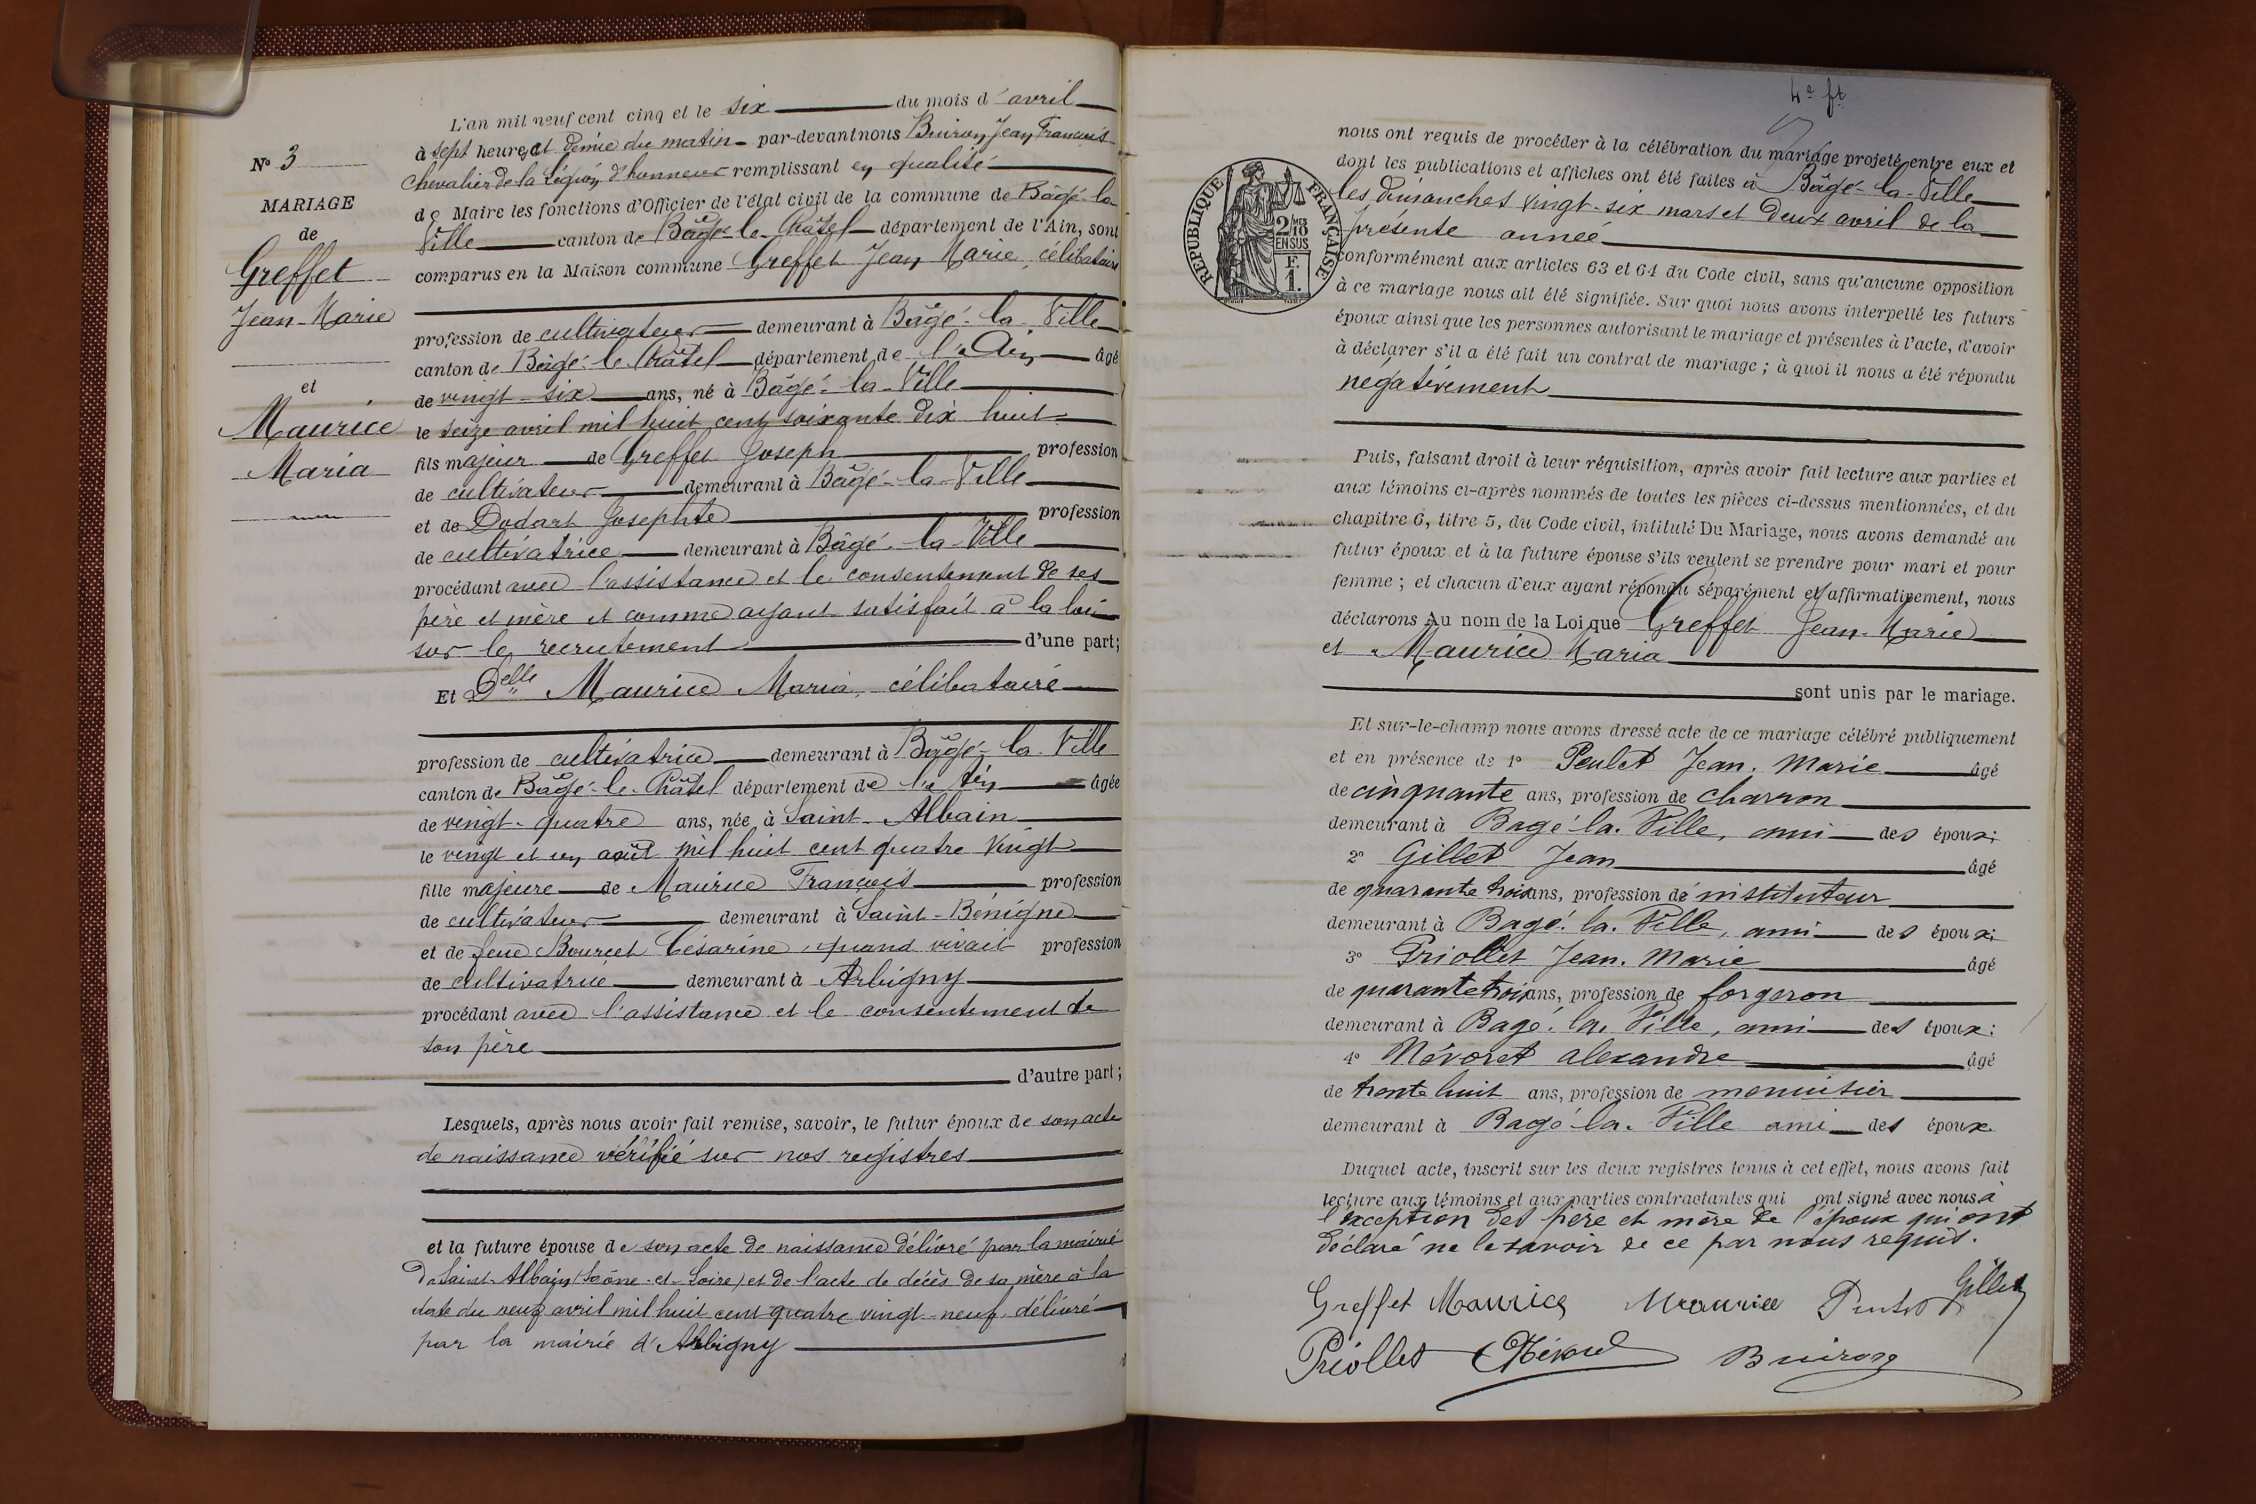 N° 3
MARIAGE
de
Greffet
Jean-Marie
et
Maurice
Maria
L'an mil neuf cent cinq et le six du mois d'avril
à sept heures et demie du matin par-devant nous Buiron Jean François
Chevalier de la Légion d'honneur remplissant en qualité
de Maire les fonctions d'Officier de l'état civil de la commune de Bâgé-la-
Ville canton de Bâgé-le-Châtel département de l'Ain, sont
comparus en la Maison commune Greffet Jean Marie, célibataire
profession de cultivateur demeurant à Bâgé-la-Ville
canton de Bâgé-le-Châtel département de l'Ain âgé
de vingt-six ans, né à Bâgé-la-Ville
le seize avril mil huit cent soixante dix huit
fils majeur de Greffet Joseph profession
de cultivateur demeurant à Bâgé-la-Ville
et de Dodart Josephte profession
de cultivatrice demeurant à Bâgé-la-Ville
procédant avec l'assistance et le consentement de ses
père et mère et comme ayant satisfait à la loi
sur le recrutement d'une part;
Et Delle Maurice Maria, célibataire
profession de cultivatrice demeurant à Bâgé-la-Ville
canton de Bâgé-le-Châtel département de l'Ain âgée
de vingt-quatre ans, née à Saint-Albain
le vingt et un août mil huit cent quatre vingt
fille majeure de Maurice François profession
de cultivateur demeurant à Saint-Bénigne
et de feue Bourcet Césarine, quand vivait profession
de cultivatrice demeurant à Arbigny
procédant avec l'assistance et le consentement de
son père
d'autre part;
Lesquels, après nous avoir fait remise, savoir, le futur époux de son acte
de naissance vérifié sur nos registres
et la future épouse de son acte de naissance délivré par la mairie
de Saint-Albain (Saône-et-Loire) et de l'acte de décès de sa mère à la
date du neuf avril mil huit cent quatre vingt-neuf délivré
par la mairie d'Arbigny
4e ft
nous ont requis de procéder à la célébration du mariage projeté entre eux et
dont les publications et affiches ont été faites à Bâgé-la-Ville
les dimanches vingt-six mars et deux avril de la
présente année
RÉPUBLIQUE FRANÇAISE
2/10MES
EN SUS
F.
1.
conformément aux articles 63 et 64 du Code civil, sans qu'aucune opposition
à ce mariage nous ait été signifiée. Sur quoi nous avons interpellé les futurs
époux ainsi que les personnes autorisant le mariage et présentes à l'acte, d'avoir
à déclarer s'il a été fait un contrat de mariage; à quoi il nous a été répondu
négativement
Puis, faisant droit à leur réquisition, après avoir fait lecture aux parties et
aux témoins ci-après nommés de toutes les pièces ci-dessus mentionnées, et du
chapitre 6, titre 5, du Code civil, intitulé Du Mariage, nous avons demandé au
futur époux et à la future épouse s'ils veulent se prendre pour mari et pour
femme; et chacun d'eux ayant répondu séparément et affirmativement, nous
déclarons Au nom de la Loi que Greffet Jean-Marie
et Maurice Maria
sont unis par le mariage.
Et sur-le-champ nous avons dressé acte de ce mariage célébré publiquement
et en présence de 1° Peulet Jean. Marie âgé
de cinquante ans, profession de charron
demeurant à Bagé-la. Ville, ami des époux;
2° Gillet Jean âgé
de quarante trois ans, profession de instituteur
demeurant à Bagé. la. Ville, ami des époux;
3° Priollet Jean. Marie âgé
de quarante trois ans, profession de forgeron
demeurant à Bagé. la. Ville, ami des époux;
4° Névoret alexandre âgé
de trente huit ans, profession de menuisier
demeurant à Bagé la. Ville ami des époux.
Duquel acte, inscrit sur les deux registres tenus à cet effet, nous avons fait
lecture aux témoins et aux parties contractantes qui ont signé avec nous à
l'exception des père et mère de l'époux qui ont
déclaré ne le savoir de ce par nous requis.
Greffet Maurice Maurice Peulet Gillet
Priollet Névoret Buiron